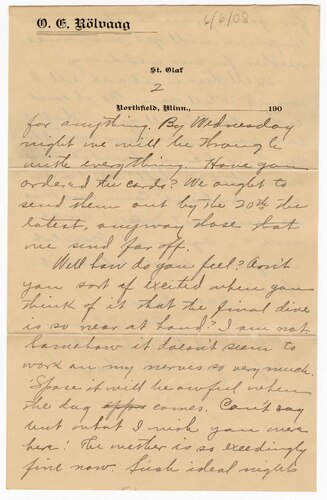 6/6/08
O. E. Rölvaag
St. Olaf
2
Northfield, Minn., 190
for anything. By Wednesday
night we will be through
with everything. Have you
ordered the cards? We ought to
send them out by the 20th the
latest, anyway those that
we send far off.
Well how do you feel? Aren't
you sort of excited when you
think of it that the final dive
is so near at hand? I am not
Somehow it doesn't seem to
work on my nerves so very much.
'Spose it will be awful when
the day comes. Can't say
but what I wish you were
here! The weather is so exceedingly
fine now. Such ideal nights